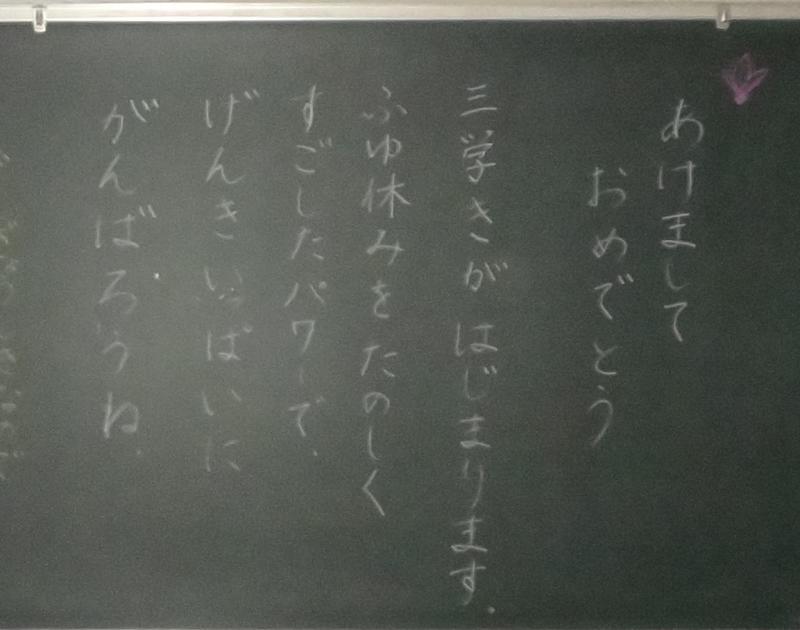 あけまして
おめでとう
三学きがはじまります。
ふゆ休みをたのしく
すごしたパワーで、
げんきいっぱいに
がんばろうね。